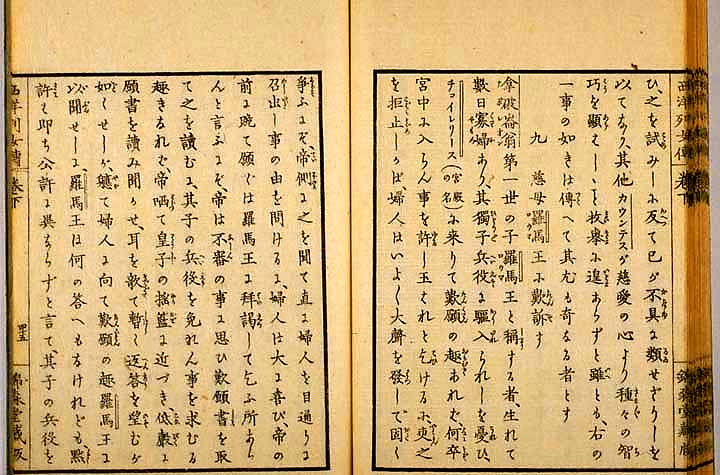 西洋列女傳 卷下
ひ、之を試みしに反て已が不具に類せざりしを
以てなり、其他カウンテスが慈愛の心より種々の智
巧を顯せしこと枚擧に遑あらずと雖とも、右の
一事の如きは傳へて其尤も奇なる者とす
九 慈母羅馬王に歎訴す
拿破崙翁第一世の子羅馬王と稱する者、生れて
數日寡婦あり、其獨子兵役に驅入られしを憂ひ、
チュイレリース（宮殿の名）に来りて歎願の趣あれば、何卒
宮中に入らん事を許し玉はれと乞けるに、吏之
を拒止しかば婦人はいよ〳〵大聲を發して固く
爭ふにぞ、帝側に之を聞て直に婦人を目通りに
召出し事の由を問けるに、婦人は大に喜び、帝の
前に跪て願くは羅馬王に拜謁して乞ふ所あら
んと言ふにぞ、帝は不審の事に思ひ歎願書を取
て之を讀むに、其子の兵役を免れん事を求むる
趣きなれば、帝哂て皇子の搖籃に近づき、低聲に
願書を讀み聞かせ、耳を欹て暫く返答を望むが
如くせしが、軈て婦人に向て歎願の趣羅馬王に
以聞せしに羅馬王は何の答へもなけれども、默
許は即ち公許に異ならずと言て、其子の兵役を
西洋列女傳 卷下 四五 錦森堂藏版